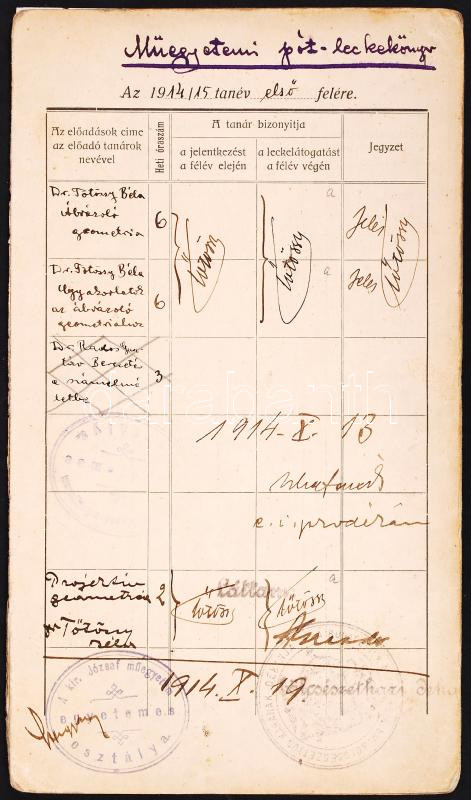 Műegyetemi pót-leckekönyv
Az 1914/15 tanév első felére.
Az előadások címe
az előadó tanárok
nevével
Heti óraszám
A tanár bizonyitja
a jelentkezést
a félév elején
a leckelátogatást
a félév végén
Jegyzet
Dr. Tötössy Béla
Ábrázoló
geometria
6
Tötössy
Tötössy
a
Jeles
Tötössy
Dr. Tötössy Béla
Gyakorlatok
az ábrázoló
geometriához
6
a
Jeles
Dr Rados
Bevezetés
a számelmé
letbe
3
darabanth
1914. X. 13
e. i. prodékán
Projectiv
geometria
Tötössy
Béla
2
Láttam
Tötössy
Tötössy
a
1914. X. 19.
A kir. József műegyetem
egyetemes
osztálya